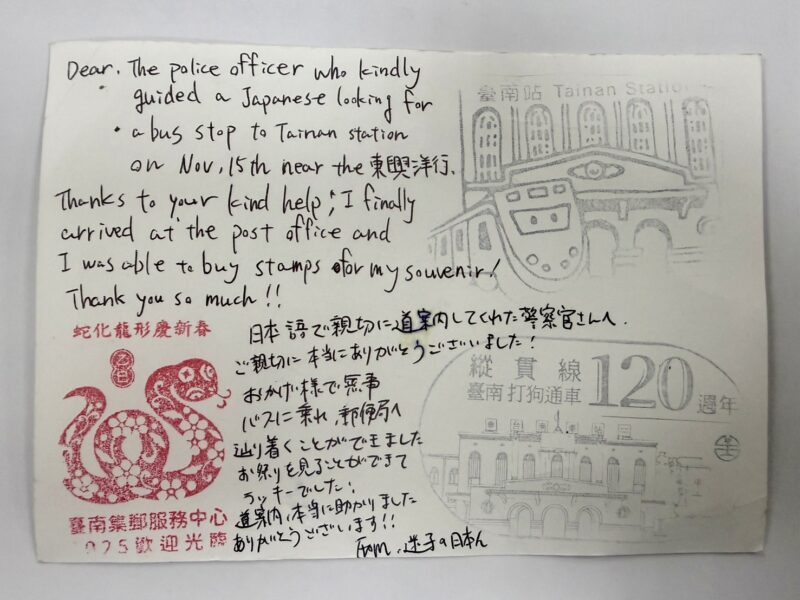 Dear. The police officer who kindly
guided a Japanese looking for
a bus stop to Tainan station
on Nov, 15th near the 東興洋行.
Thanks to your kind help, I finally
arrived at the post office and
I was able to buy stamps for my souvenir!
Thank you so much!!
臺南站 Tainan Station
日本語で親切に道案内してくれた警察官さんへ
ご親切に本当にありがとうございました!
おかげ様で無事
バスに乗れ、郵便局へ
辿り着くことができました
お祭りを見ることができて
ラッキーでした!
道案内、本当に助かりました
ありがとうございます!!
From. 迷子の日本人
蛇化龍形慶新春
臺南集郵服務中心
025歡迎光臨
縱貫線
臺南 打狗通車
120週年